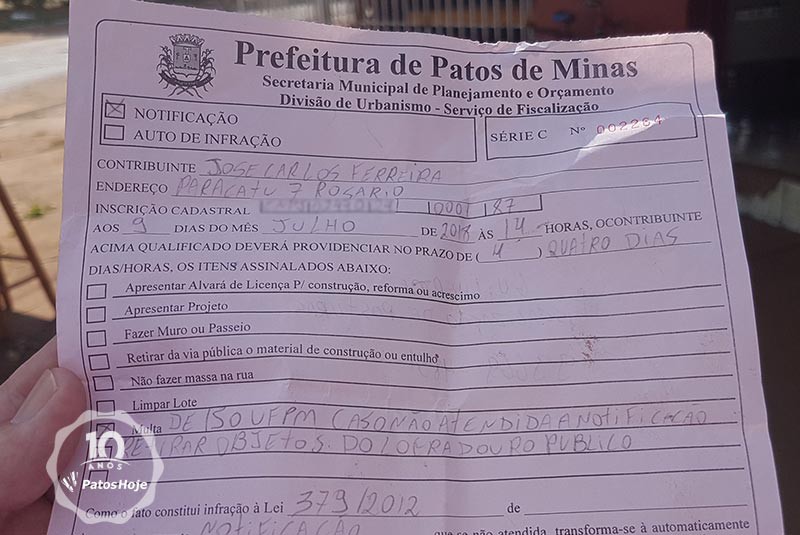 Prefeitura de Patos de Minas
Secretaria Municipal de Planejamento e Orçamento
Divisão de Urbanismo - Serviço de Fiscalização
NOTIFICAÇÃO
AUTO DE INFRAÇÃO
SÉRIE C Nº 002264
CONTRIBUINTE JOSE CARLOS FERREIRA
ENDEREÇO PARACATU 7 ROSARIO
INSCRIÇÃO CADASTRAL 000 187
AOS 9 DIAS DO MÊS JULHO DE 2018 ÀS 14 HORAS, OCONTRIBUINTE
ACIMA QUALIFICADO DEVERÁ PROVIDENCIAR NO PRAZO DE ( 4 ) QUATRO DIAS
DIAS/HORAS, OS ITENS ASSINALADOS ABAIXO:
Apresentar Alvará de Licença P/ construção, reforma ou acrescimo
Apresentar Projeto
Fazer Muro ou Passeio
Retirar da via pública o material de construção ou entulho
Não fazer massa na rua
Limpar Lote
Multa DE 150 UFPM CASO NÃO ATENDIDA A NOTIFICAÇÃO
RETIRAR OBJETOS DO LOGRADOURO PUBLICO
Como o fato constitui infração à Lei 379/2012 de
NOTIFICAÇÃO que se não atendida, transforma-se à automaticamente
10
ANOS
PatosHoje